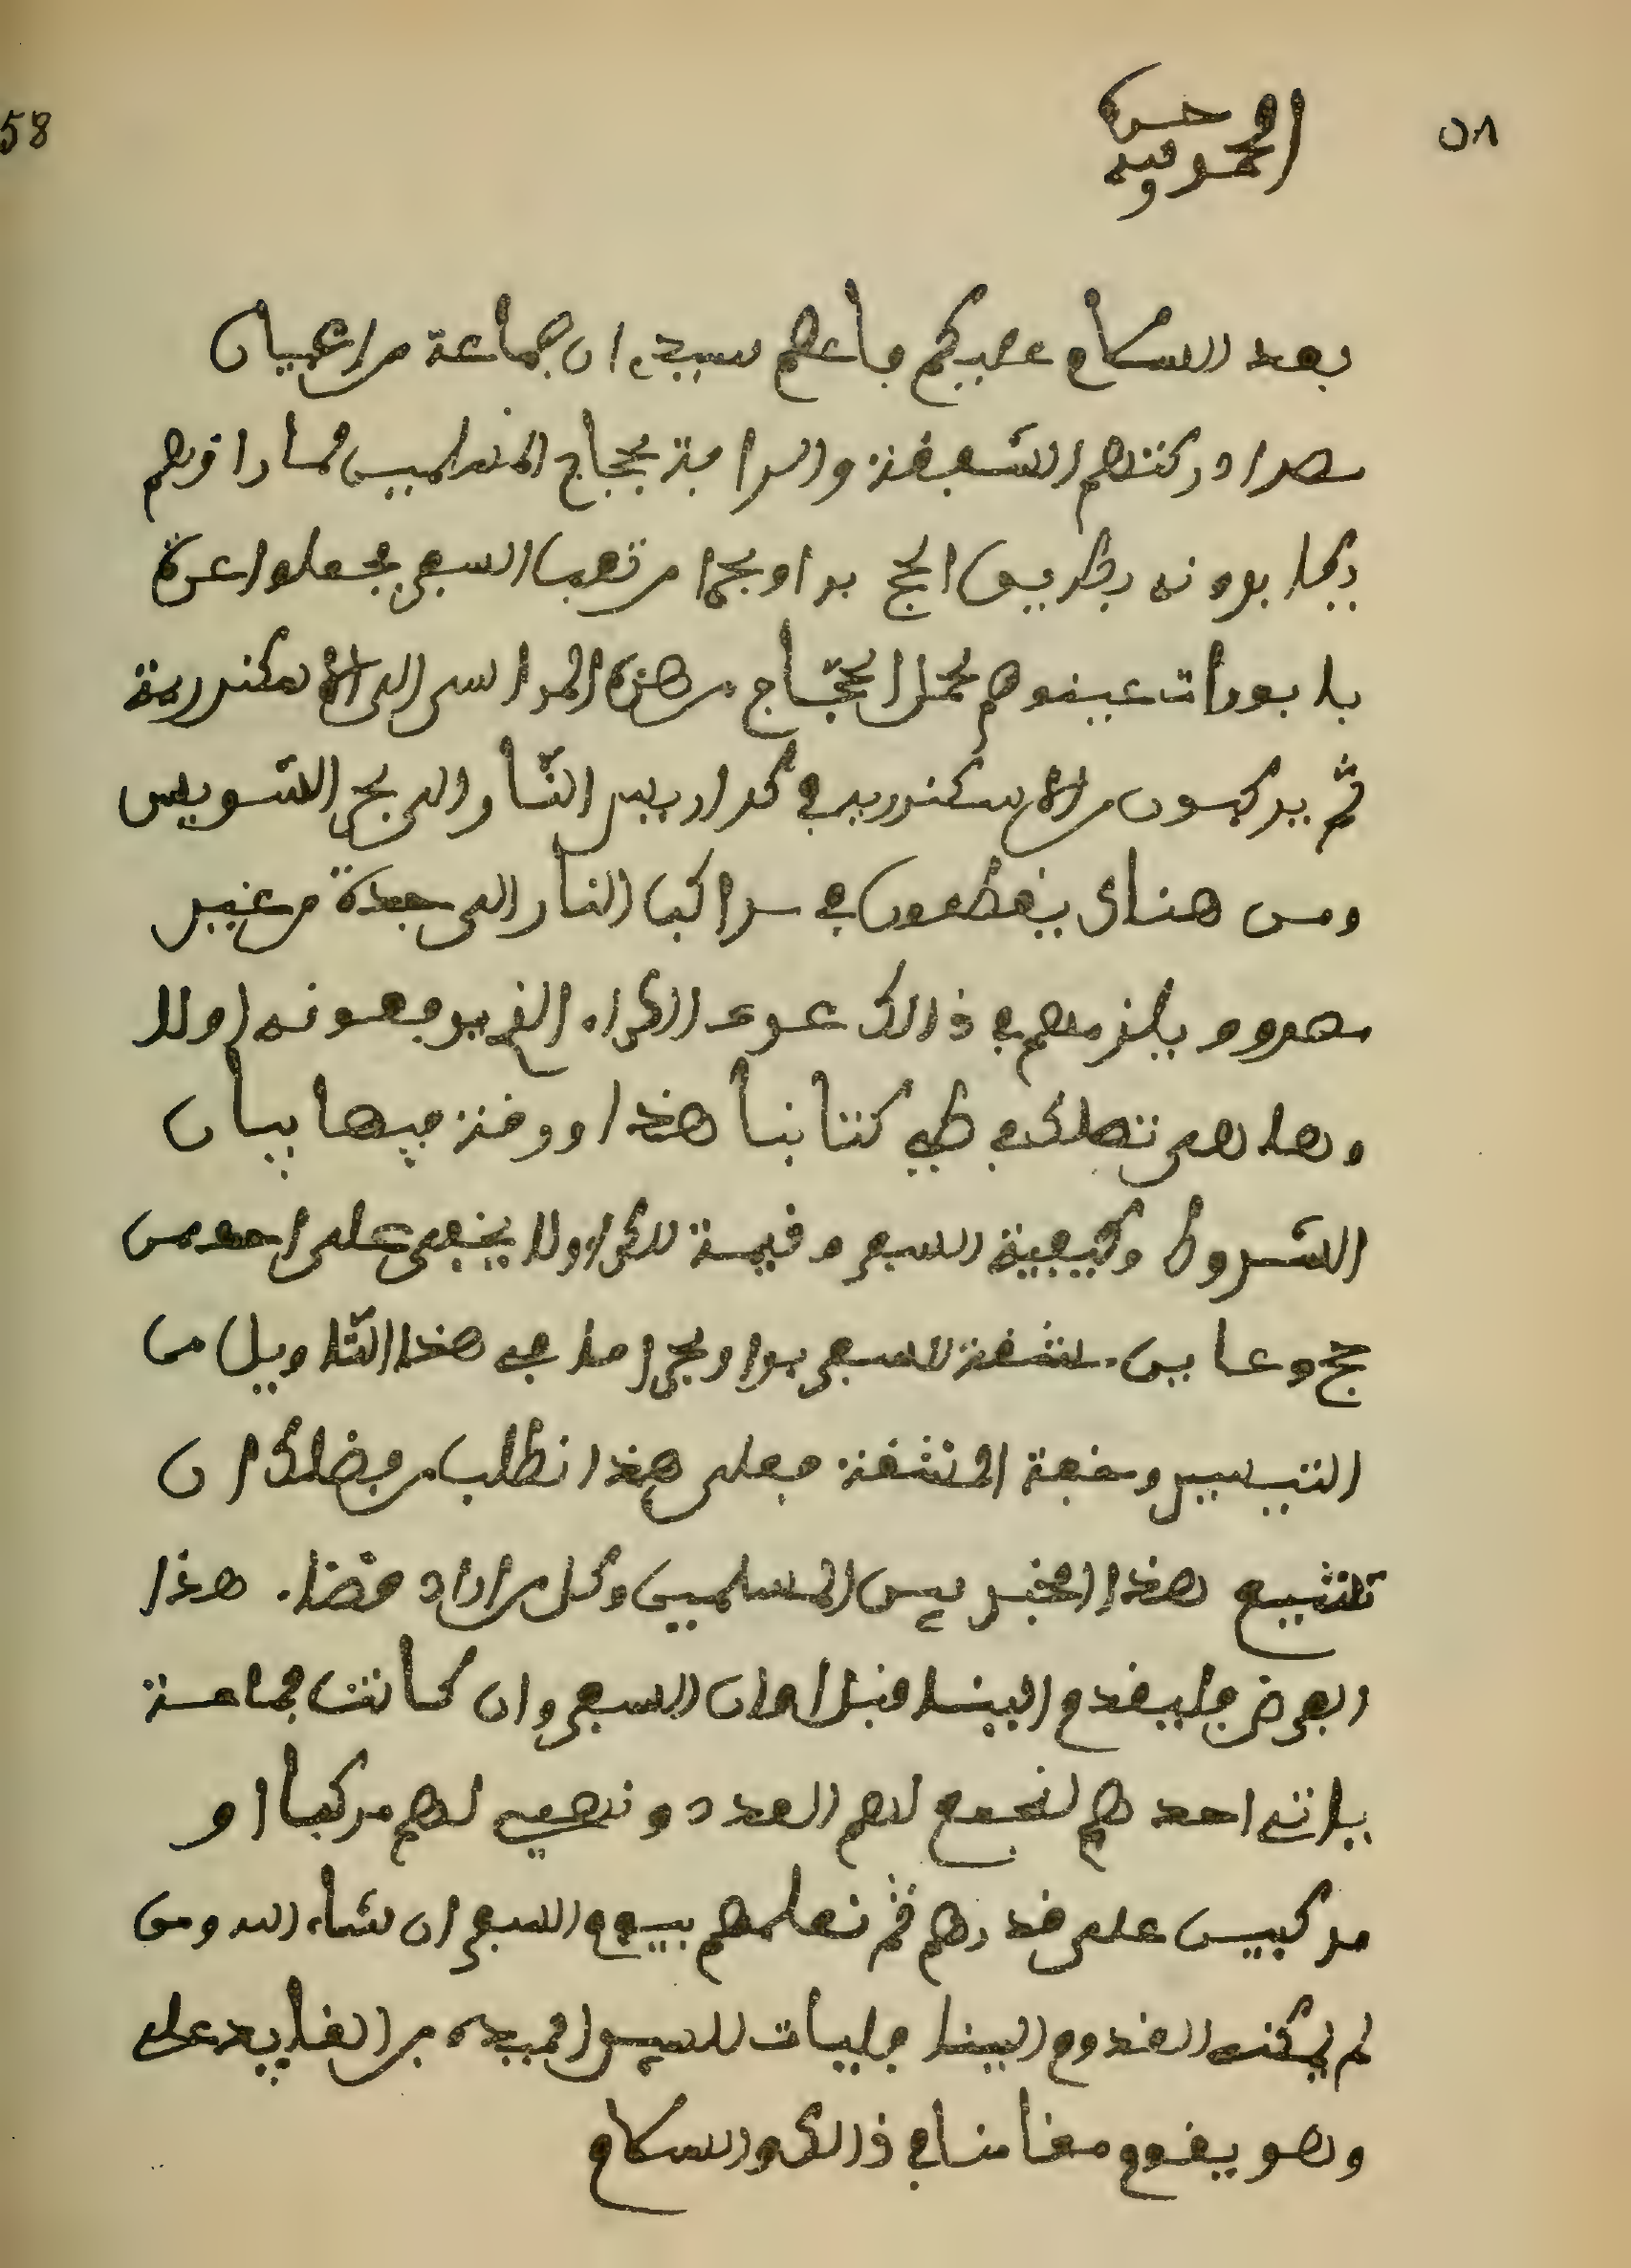 ٥٨
58
الحمد لله وحده
بعد السلام عليكم فاعلم سيدي ان جماعة من اعيان
ادركتهم الشفقة والرافة بحجاج المسلمين لما راوهم
يكابدونه بطريق الحج برا وبحرا من تعب السفر فجعلوا عدة
بابورات عينوهم لحمل الحجاج من هذه المراسي الى الاسكندرية
ثم يركبون من الاسكندرية في كراريس النار الى بحر السويس
ومن هناك يقطعون في مراكب النار الى جدة من غير
ويلزمهم في ذالك عدد الكراء الذي يدفعونه اولا
وها هي تصلك في طي كتابنا هذا ورقة فيها بيان
الشروط وكيفية السفر وقيمة الكراء ولا يخفى على احد من
حج وعاين مشقة السفر برا وبحرا ما في هذا التاويل من
التيسير وخفة المشقة فعلى هذا نطلب من فضلك ان
تشيع هذا الخبر بين المسلمين وكل من اراد قضاء هذا
الفرض فليقدم الينا قبل اوان السفر وان كانت جماعة
ياتي احدهم لنجمع لهم العدد ونهيي لهم مركبا او
مركبين على قدرهم ثم نعلمهم بيوم السفر ان شاء الله ومن
لم يمكنه القدوم الينا فليات للسيد من القايد علي
وهو يقوم مقامنا في ذالك والسلام